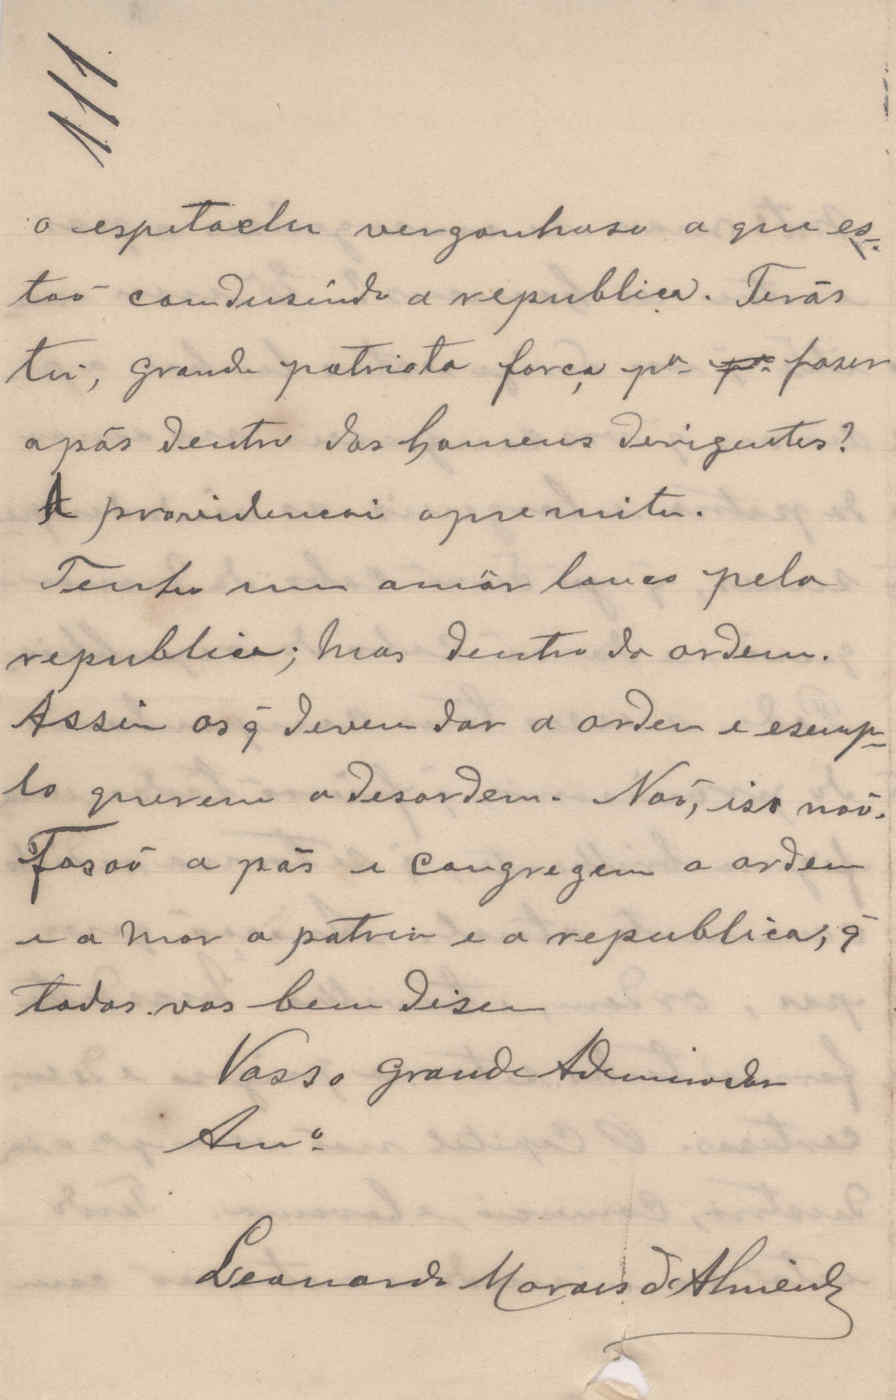 111
o espetaclu vergonhoso a que es-
taõ condusíndo a republica. Terás
tu, grande patriota força pª fazer
apás dentro dos homens derigentes?
A providencai apremitu.
Tenho um amôr louco pela
republica; mas dentro da ordem.
Assin os q̃ devem dar a orden e esemp-
lo querem a desordem. Naõ, iso naõ.
Fasaõ a pás e congregem a ordem
e a mor a patria e a republica, q̃
todos vos bem disen
Vosso grande Ademirador
Amº
Leonardo Morais de Almeida